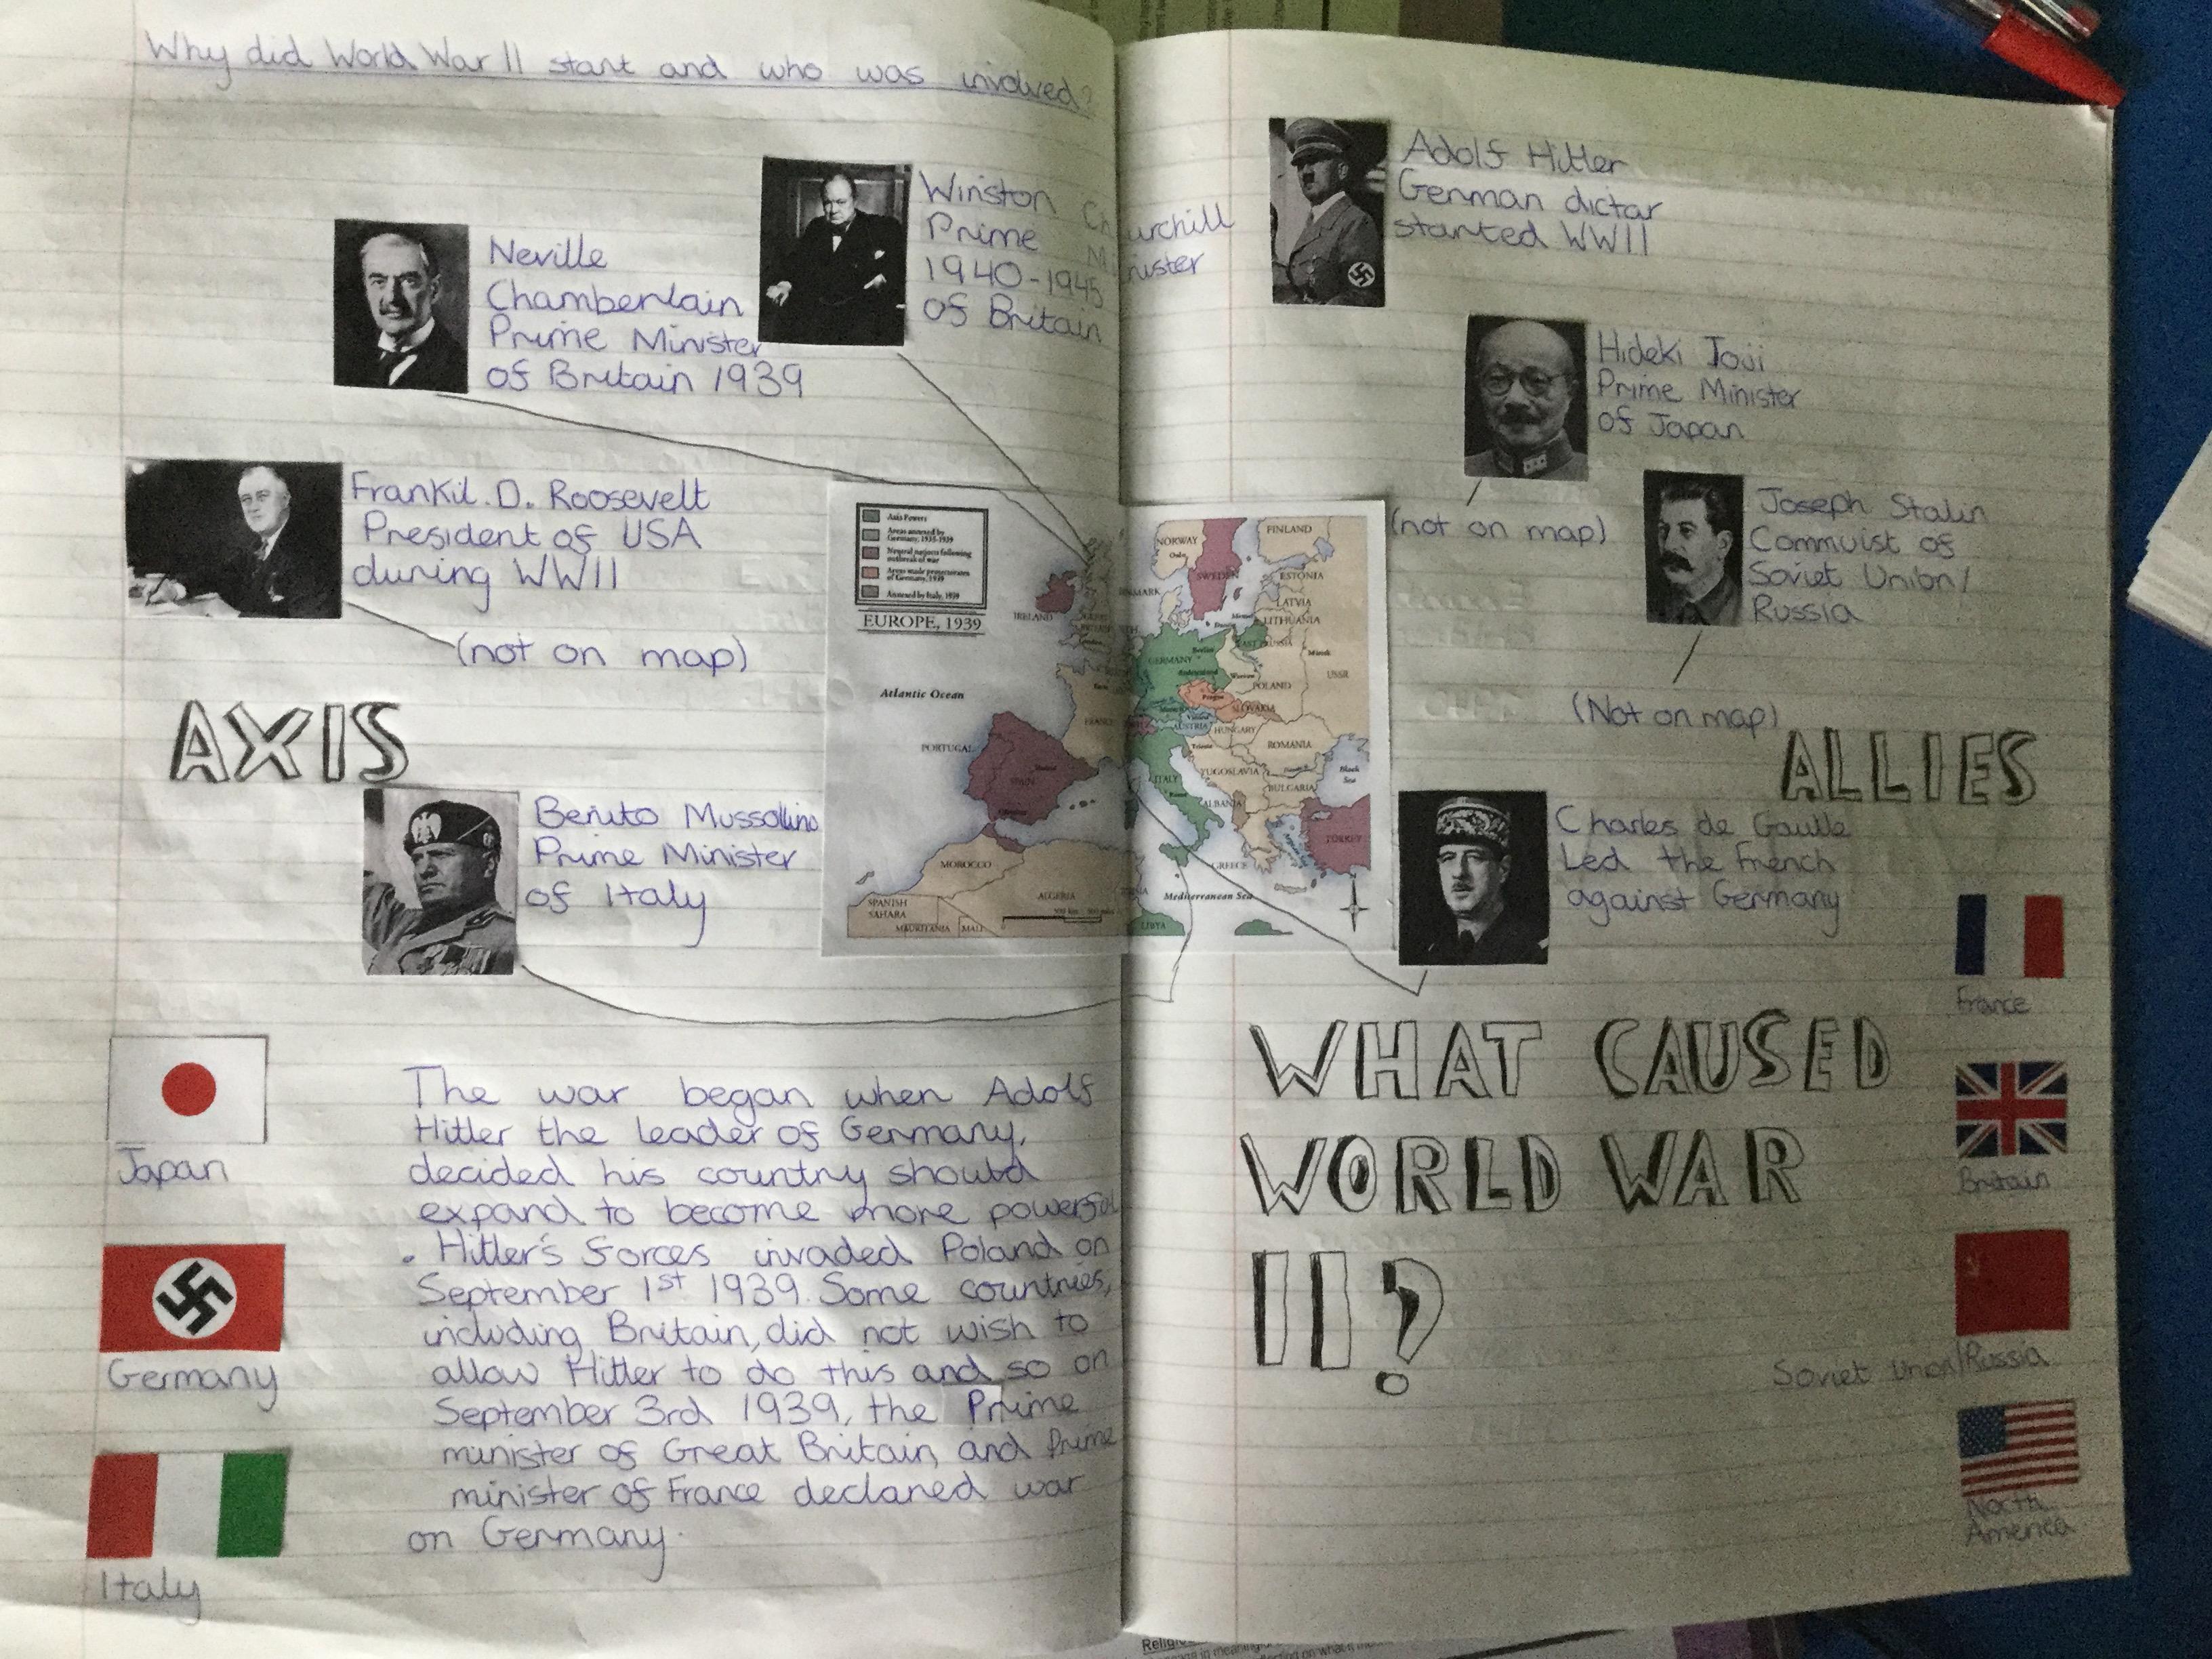 Why did World War II start and who was involved?
Neville
Chamberlain
Prime Minister
of Britain 1939
Winston Churchill
Prime Minister
1940-1945
of Britain
Adolf Hitler
German dictar
started WWII
Hideki Joji
Prime Minister
of Japan
(not on map)
Joseph Stalin
Commuist of
Soviet Union/
Russia
(Not on map)
Frankil. D. Roosevelt
President of USA
during WWII
(not on map)
AXIS
ALLIES
Axis Powers
Areas annexed by
Germany, 1935-1939
Neutral nations following
outbreak of war
Areas made protectorates
of Germany, 1939
Annexed by Italy, 1939
EUROPE, 1939
Atlantic Ocean
IRELAND
NORWAY
Oslo
SWEDEN
FINLAND
ESTONIA
LATVIA
LITHUANIA
EAST PRUSSIA
Minsk
Berlin
GERMANY
Warsaw
POLAND
USSR
Prague
SLOVAKIA
AUSTRIA
HUNGARY
ROMANIA
Trieste
YUGOSLAVIA
Black
Sea
BULGARIA
ITALY
Rome
ALBANIA
GREECE
TURKEY
PORTUGAL
SPAIN
MOROCCO
ALGERIA
SPANISH
SAHARA
MAURITANIA
MALI
LIBYA
Mediterranean Sea
Benito Mussollino
Prime Minister
of Italy
Charles de Gaulle
Led the french
against Germany
France
Britain
Soviet Union/Russia
North
America
Japan
Germany
Italy
The war began when Adolf
Hitler the leader of Germany,
decided his country should
expand to become more powerful
. Hitler's forces invaded Poland on
September 1st 1939. Some countries,
including Britain, did not wish to
allow Hitler to do this and so on
September 3rd 1939, the Prime
minister of Great Britain, and Prime
minister of France declared war
on Germany.
WHAT CAUSED
WORLD WAR
II?